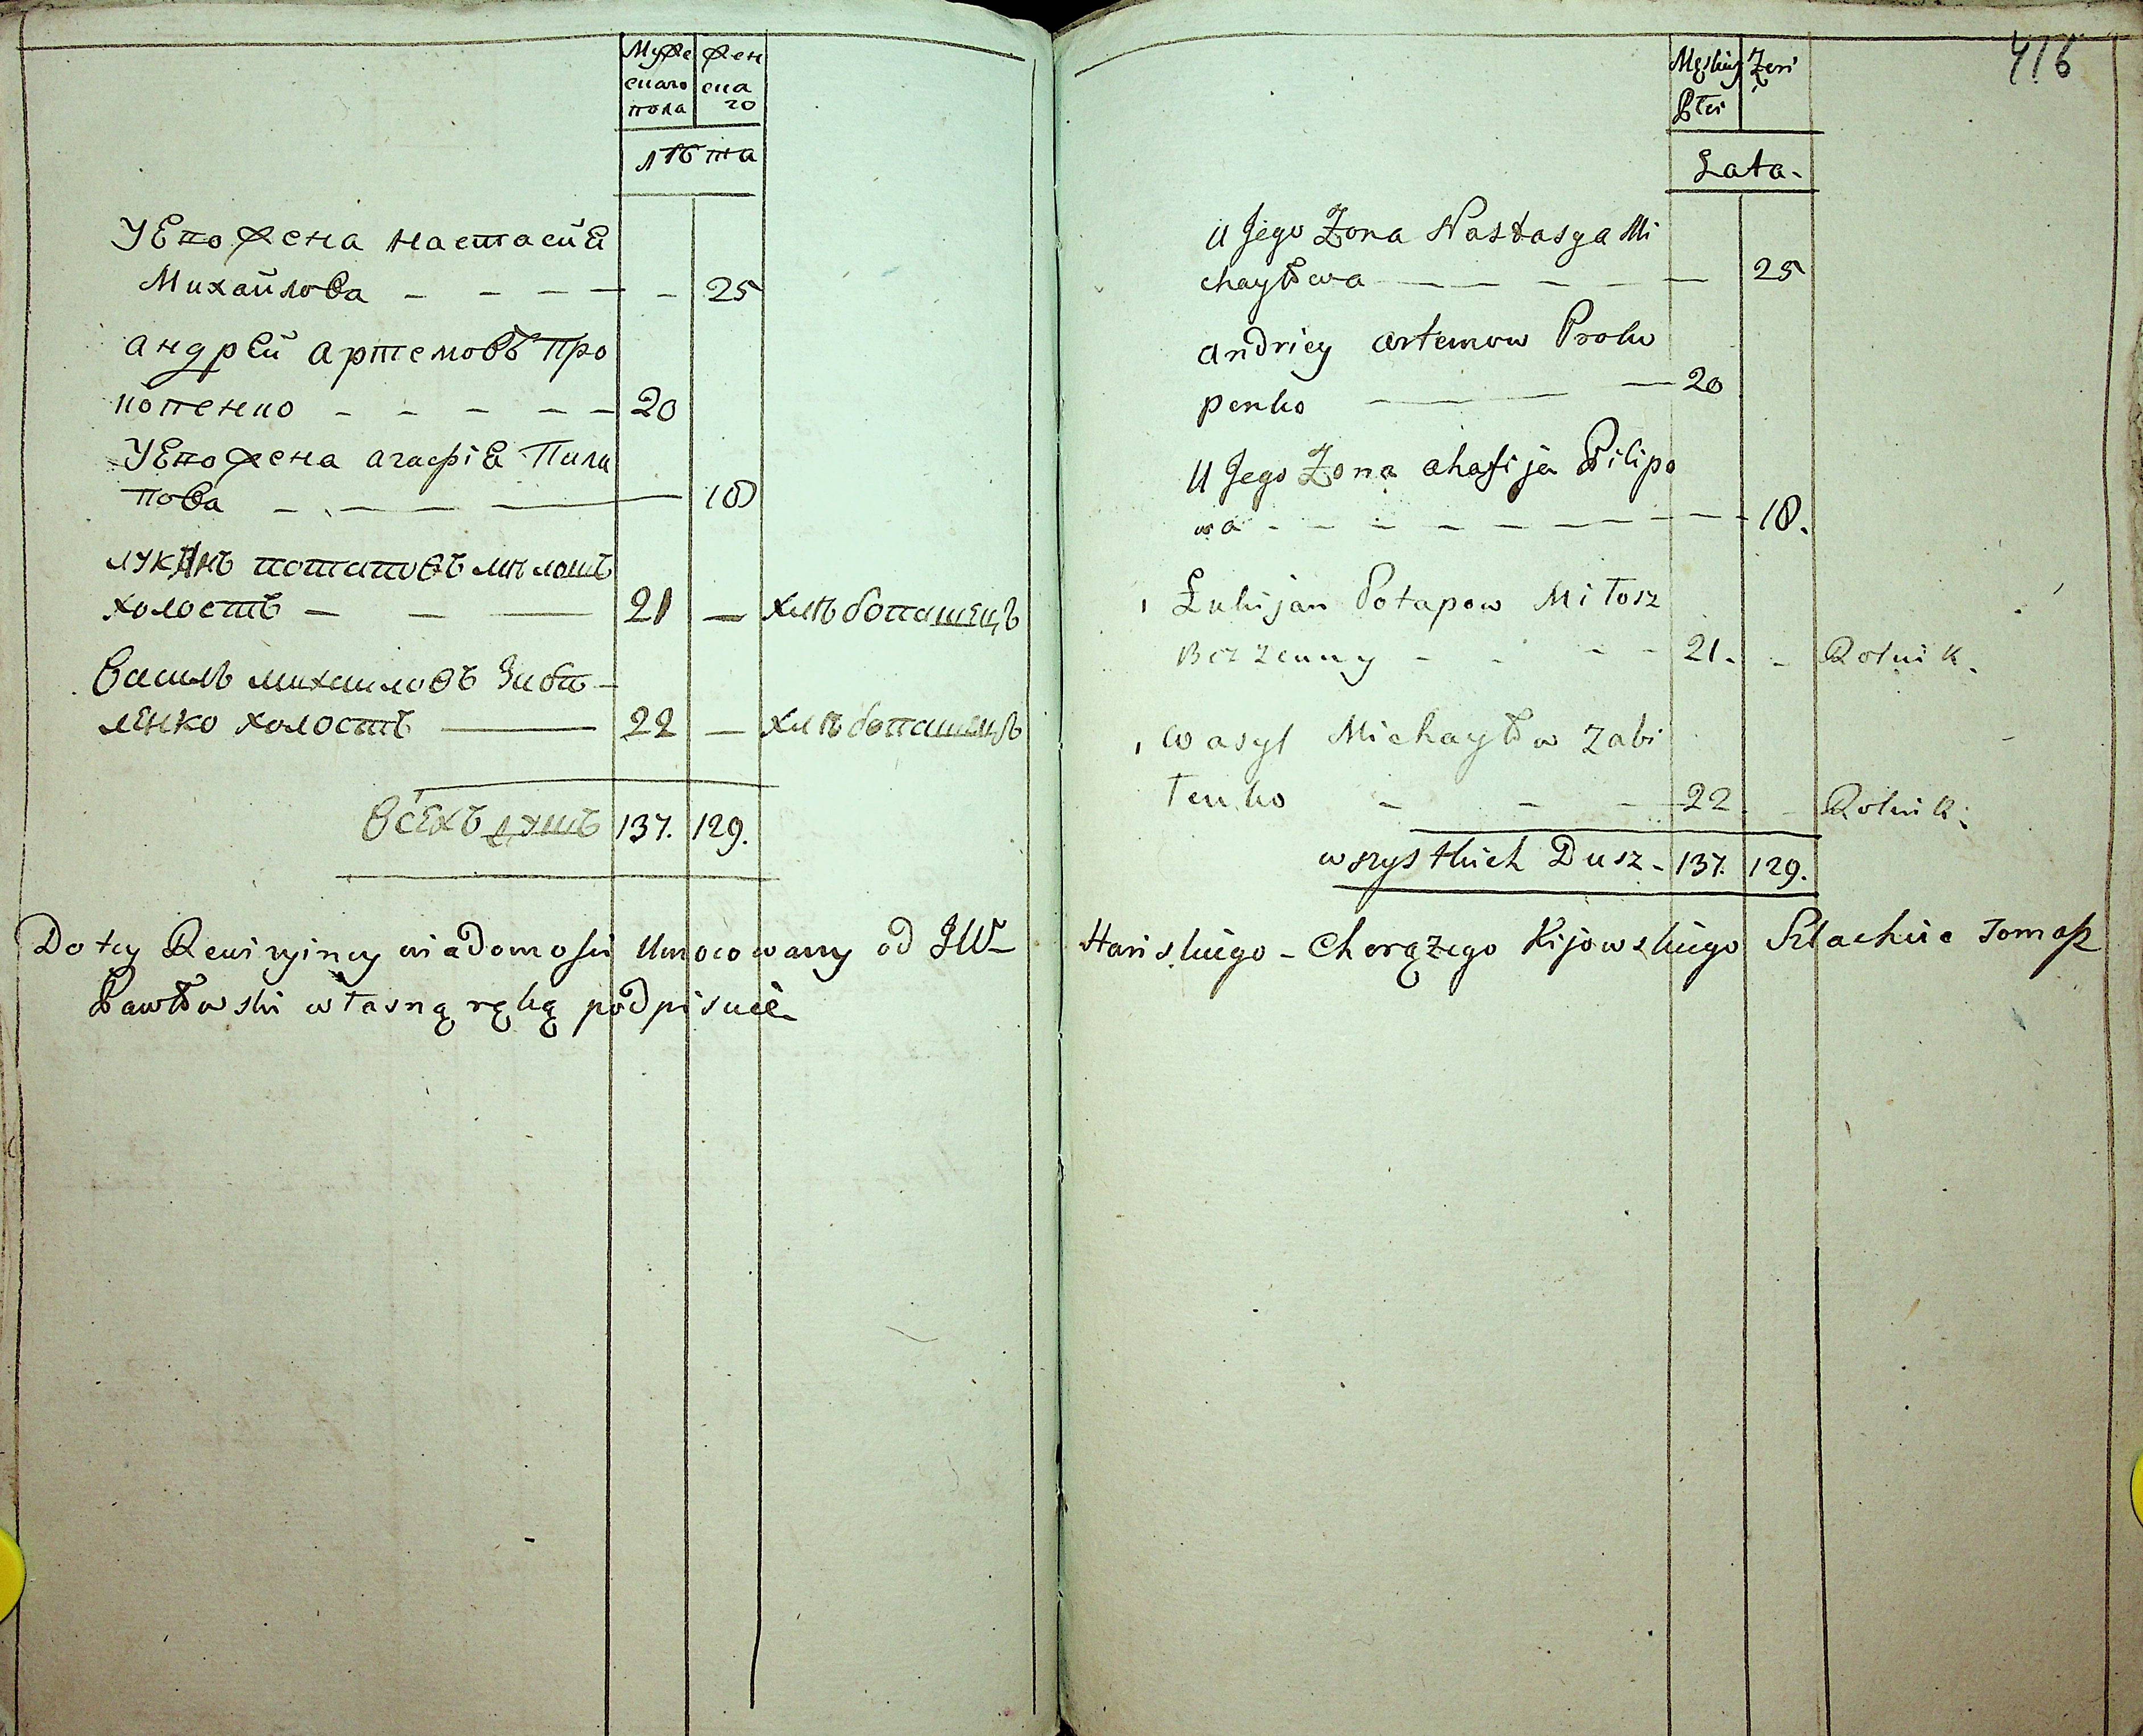 Муже жен
скаго ска
пола го
лѣта
У Его жена настасия
Михайлова - - - - - 25
андрей артемовъ про
копенко - - - - - 20
У Его жена агафія Пили
пова - - - - 18
лукянъ потаповъ милошъ
холостъ - - - 21 - хлѣбопашецъ
василь михаиловъ Забѣ-
ленко холостъ - 22 - хлѣбопашецъ
всехъ душъ 137. 129.
416
Męskiey Zeń
Płci
Lata.
U Jego Zona Nastasya Mi
chayłowa - - - - - 25
andriey artemow Proko
penko - - - 20
U Jego Zona ahafija Pilipo
wa - - - - - - - - 18.
Łukijan Potapow Miłosz
Bezzenny - - - - 21. - Rolnik.
Wasyl Michayłow Zabi
łenko - - - 22. - Rolnik.
wszystkich Dusz - 137. 129.
Do tey Rewizyiney wiadomości Umocowany od JW- Hańskiego - Chorążego Kijowskiego Szlachcic Tomasz
Pawłowski własną ręką podpisuie